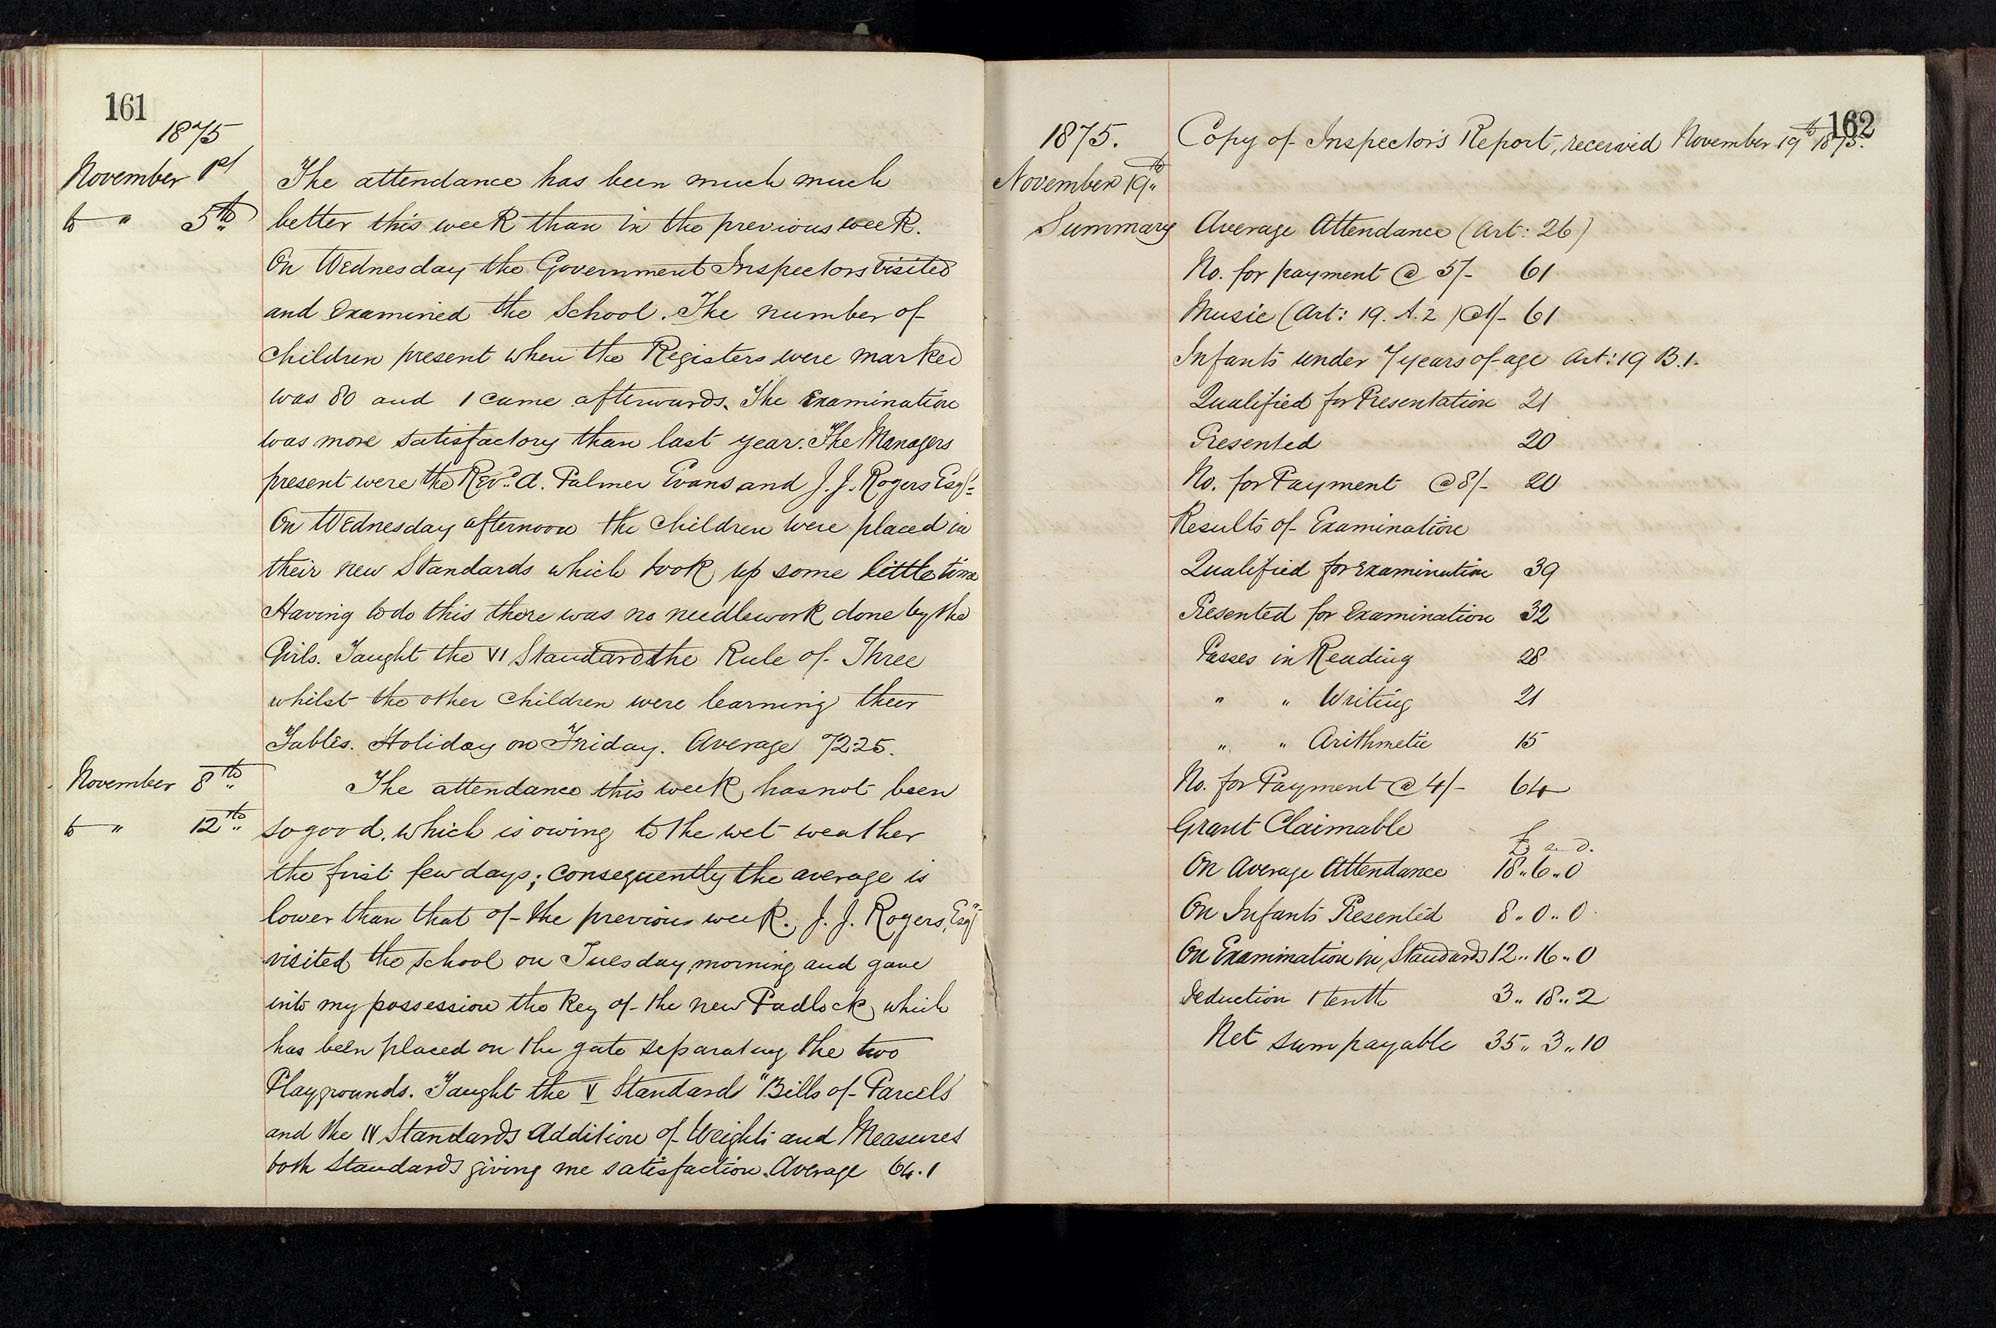 161
1875
November 1st
The attendance has been much much
to " 5th
better this week than in the previous week.
On Wednesday the Government Inspectors visited
and examined the School. The number of
children present when the Registers were marked
was 80 and 1 came afterwards. The Examination
was more satisfactory than last year. The Managers
present were the Revd. A. Palmer Evans and J. J. Rogers Esqr.
On Wednesday afternoon the children were placed in
their new Standards which took up some little time
Having to do this there was no needlework done by the
Girls. Taught the VI Standard the Rule of Three
whilst the other children were learning their
Tables. Holiday on Friday. Average 72.25.
November 8th
The attendance this week has not been
to " 12th
so good, which is owing to the wet weather
the first few days; consequently the average is
lower than that of the previous week. J. J. Rogers, Esqr.
visited the school on Tuesday morning and gave
into my possession the key of the new Padlock which
has been placed on the gate separating the two
Playgrounds. Taught the V Standard "Bills of Parcels"
and the IV Standards Addition of Weights and Measures
both Standards giving me satisfaction. Average 64.1
162
1875.
Copy of Inspector's Report, received November 19th 1875.
November 19th
Summary
Average Attendance (Art: 26)
No. for payment @ 5/- 61
Music (Art: 19. A. 2) @ 1/- 61
Infants under 7 years of age Art: 19 B. 1.
Qualified for Presentation 21
Presented 20
No. for Payment @ 8/- 20
Results of Examination
Qualified for Examination 39
Presented for Examination 32
Passes in Reading 28
" " Writing 21
" " Arithmetic 15
No. for Payment @ 4/- 64
Grant Claimable
£ s. d.
On Average Attendance 18 " 6 " 0
On Infants Presented 8 " 0 " 0
On Examination in Standards 12 " 16 " 0
Deduction 1 tenth 3 " 18 " 2
Net sum payable 35 " 3 " 10